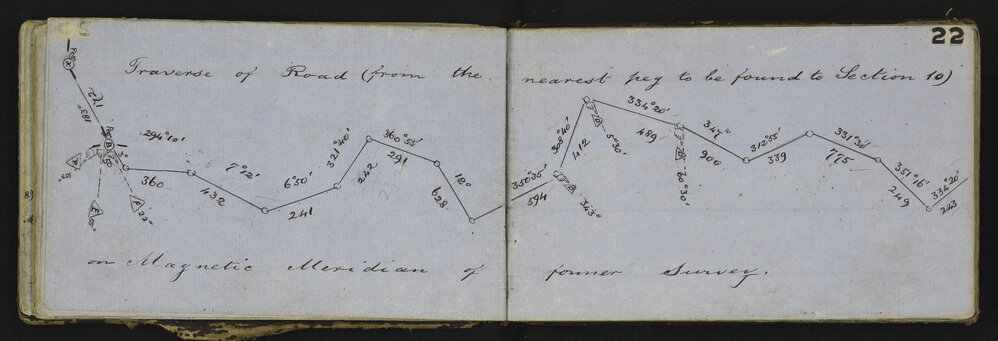 22
Traverse of Road (from the nearest peg to be found to Section 10)
Peg X
172
183°
Peg B
294°10'
360
7°12'
432
6°50'
241
321°40'
242
360°55'
291
12°
628
350°35'
594
308°40'
412
B
343°
334°20'
489
5°30'
347°
900
20°30'
312°55'
339
331°30'
775
351°16'
249
334°20'
243
A
E
F
22°
on Magnetic Meridian of former Survey.